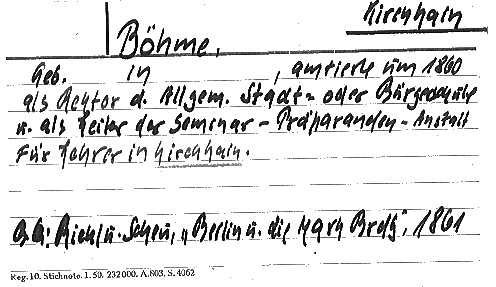 Kirchhain
Böhme,
Geb. in , amtierte um 1860
als Rektor d. Allgem. Stadt= oder Bürgerschule
u. als Leiter der Seminar-Präparanden-Anstalt
für Lehrer in Kirchhain.
u. die Mark Brdbg", 1861
Reg. 10. Stichnote. 1. 50. 232000. A. 803. S. 4062